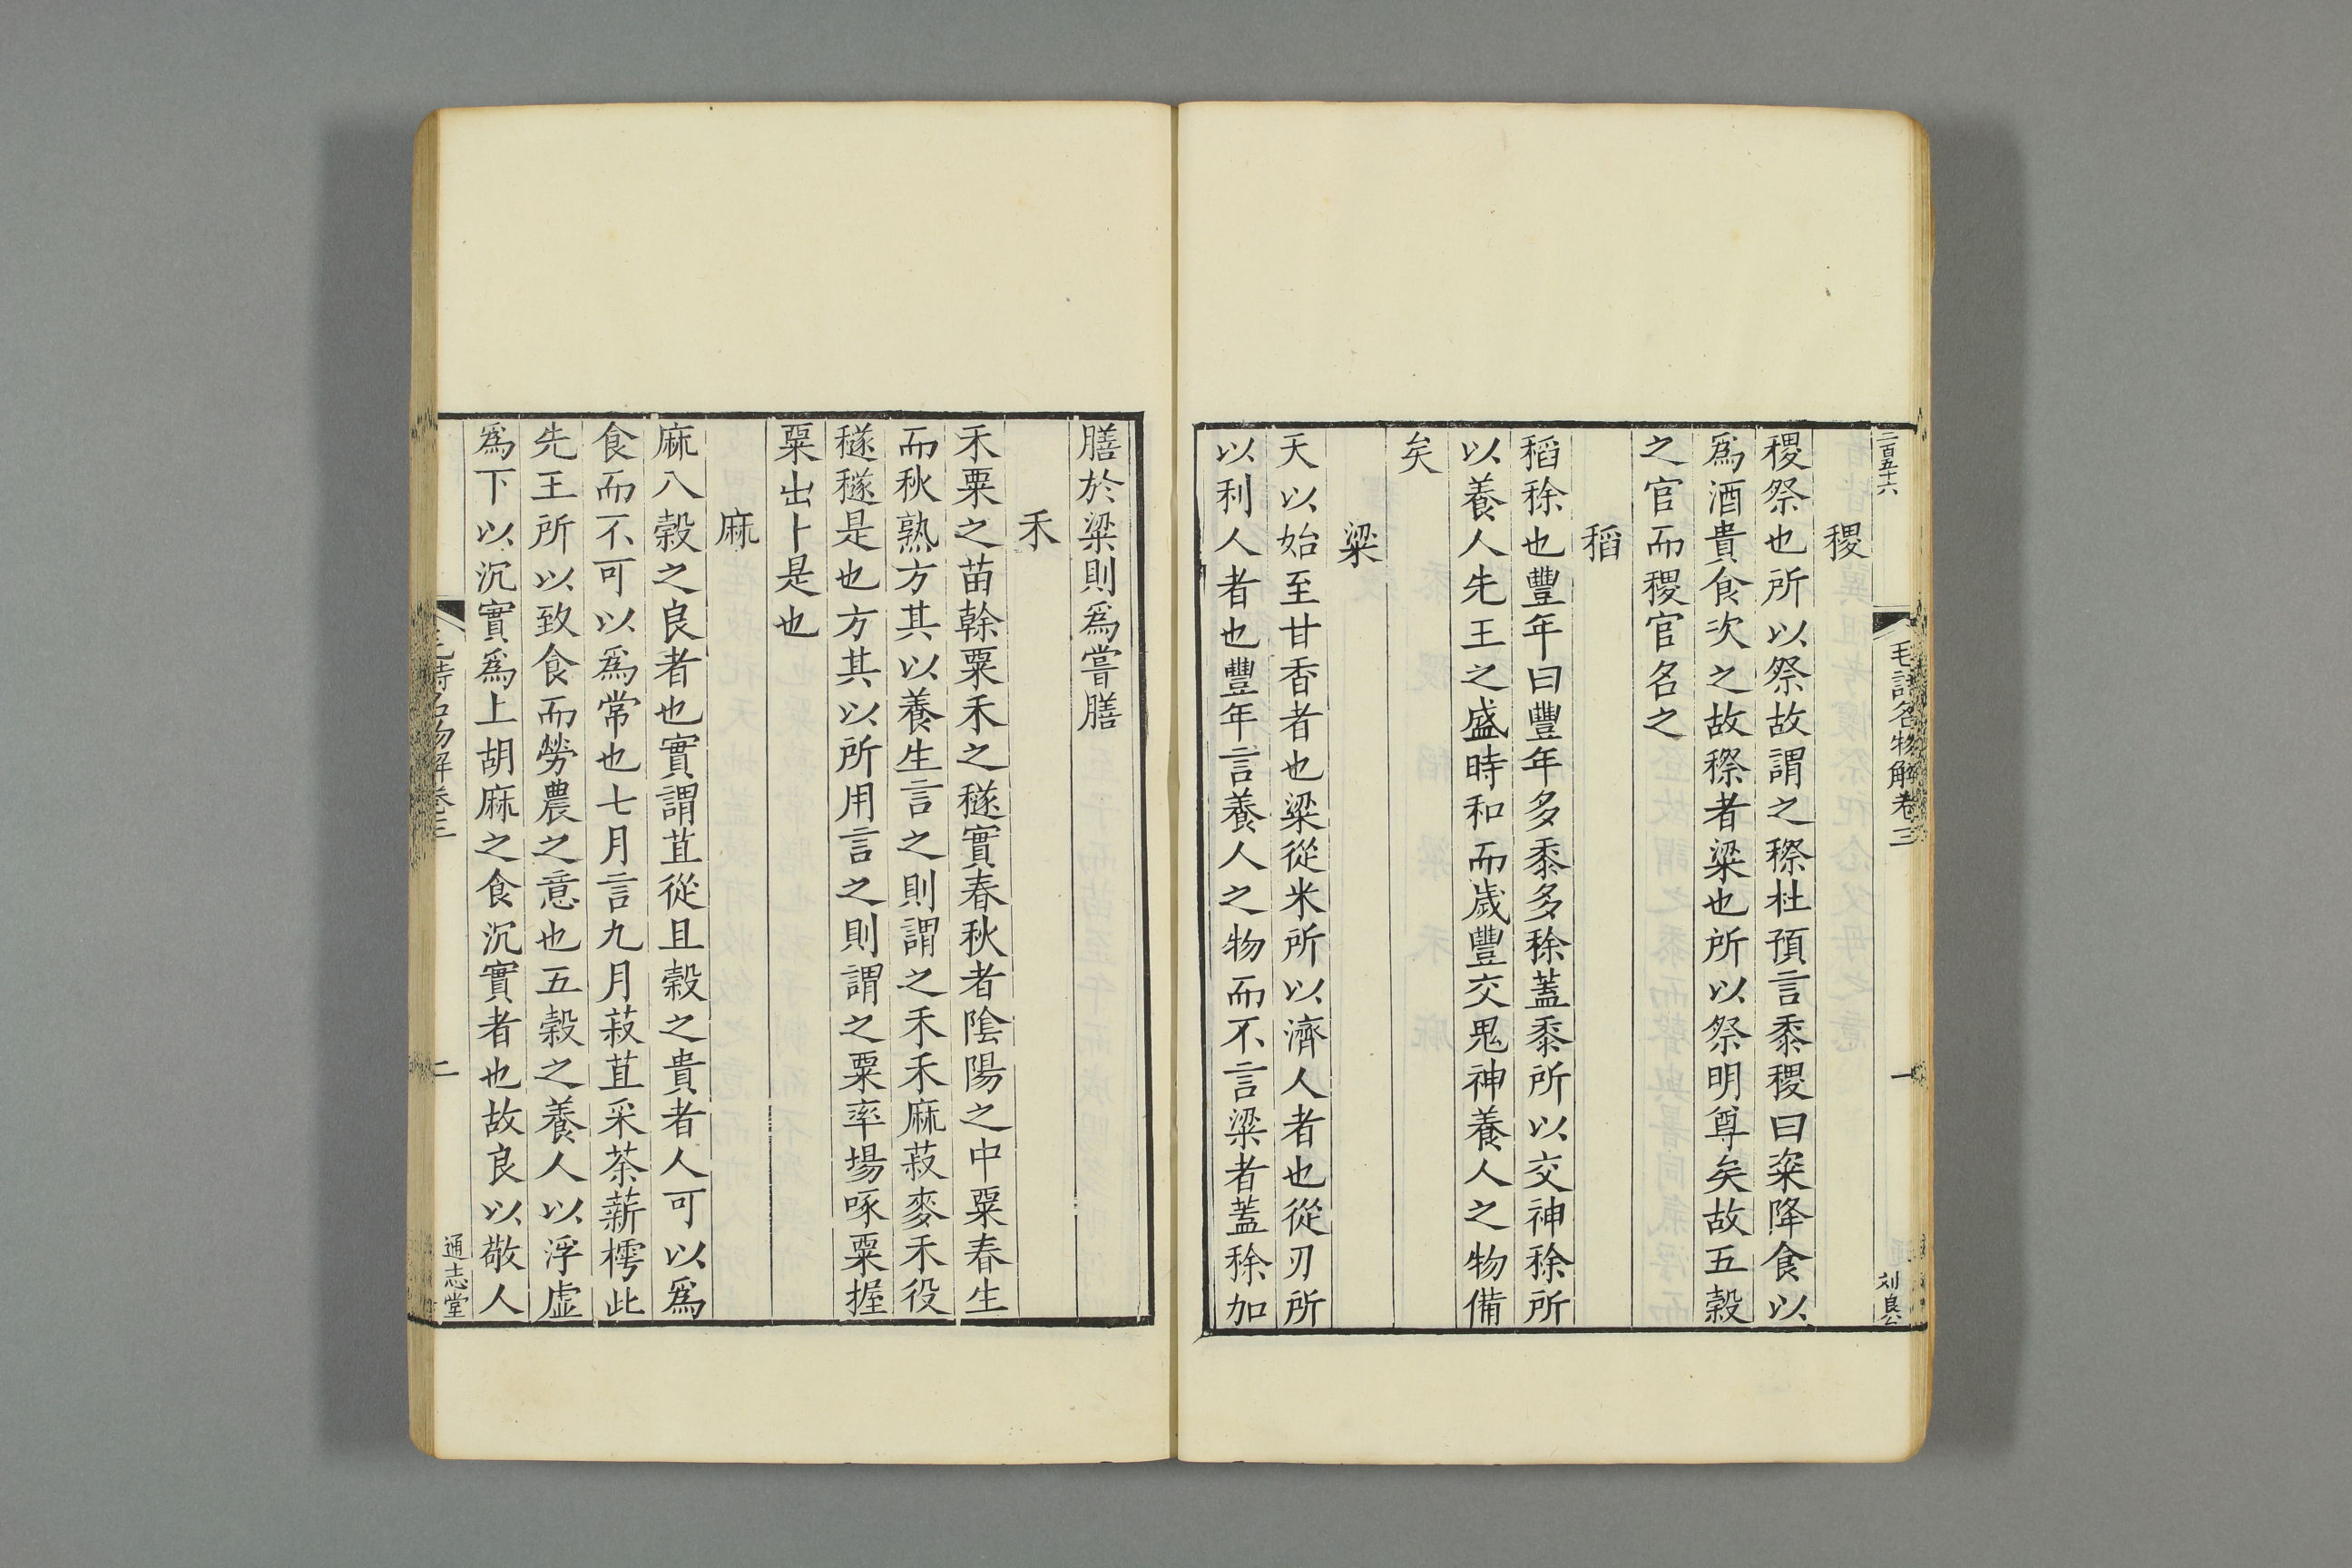 二百五十六
毛詩名物解卷三
一
刘良公
稷
稷祭也所以祭故謂之穄杜預言黍稷曰粢降食以
爲酒貴食次之故穄者粱也所以祭明尊矣故五穀
之官而稷官名之
稻
稻稌也豐年曰豐年多黍多稌蓋黍所以交神稌所
以養人先王之盛時和而歲豐交鬼神養人之物備
矣
粱
天以始至甘香者也粱從米所以濟人者也從刃所
以利人者也豐年言養人之物而不言粱者蓋稌加
膳於粱則爲嘗膳
禾
禾粟之苗榦粟禾之穟實春秋者陰陽之中粟春生
而秋熟方其以養生言之則謂之禾禾麻菽麥禾役
穟穟是也方其以所用言之則謂之粟率場啄粟握
粟出卜是也
麻
麻八穀之良者也實謂苴從且穀之貴者人可以爲
食而不可以爲常也七月言九月菽苴采荼薪樗此
先王所以致食而勞農之意也五穀之養人以浮虛
爲下以沉實爲上胡麻之食沉實者也故良以敬人
毛詩名物解卷三
二
通志堂